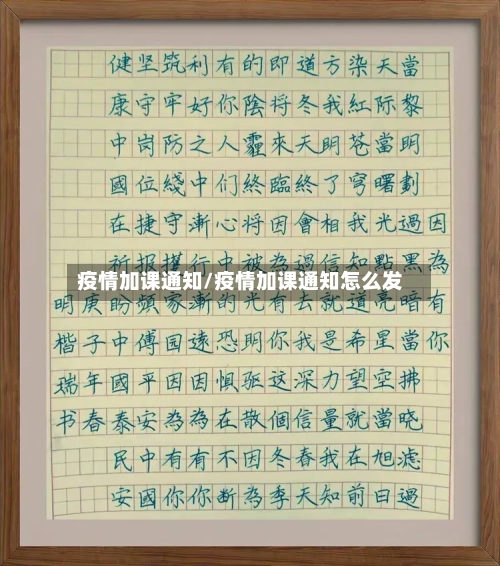 健坚筑利有的即道方染天當
康守牢好你陰将冬我紅际黎
中岗防之人霾來天明苍當明
國位綫中们終臨終了穹曙劃
在捷守漸心將因會相我光過因
祈报携行中被為過信知點黑為
疫情加课通知/疫情加课通知怎么发
明庚盼頭家漸的光有去就道亮暗有
楷子中傅园遠恐明你我是希星當你
瑞年國平因因惧驱这深力望空拂
书春泰安為為在散個信量就當晓
民中有有不因冬春我在旭滤
安國你你断為季天知前日過